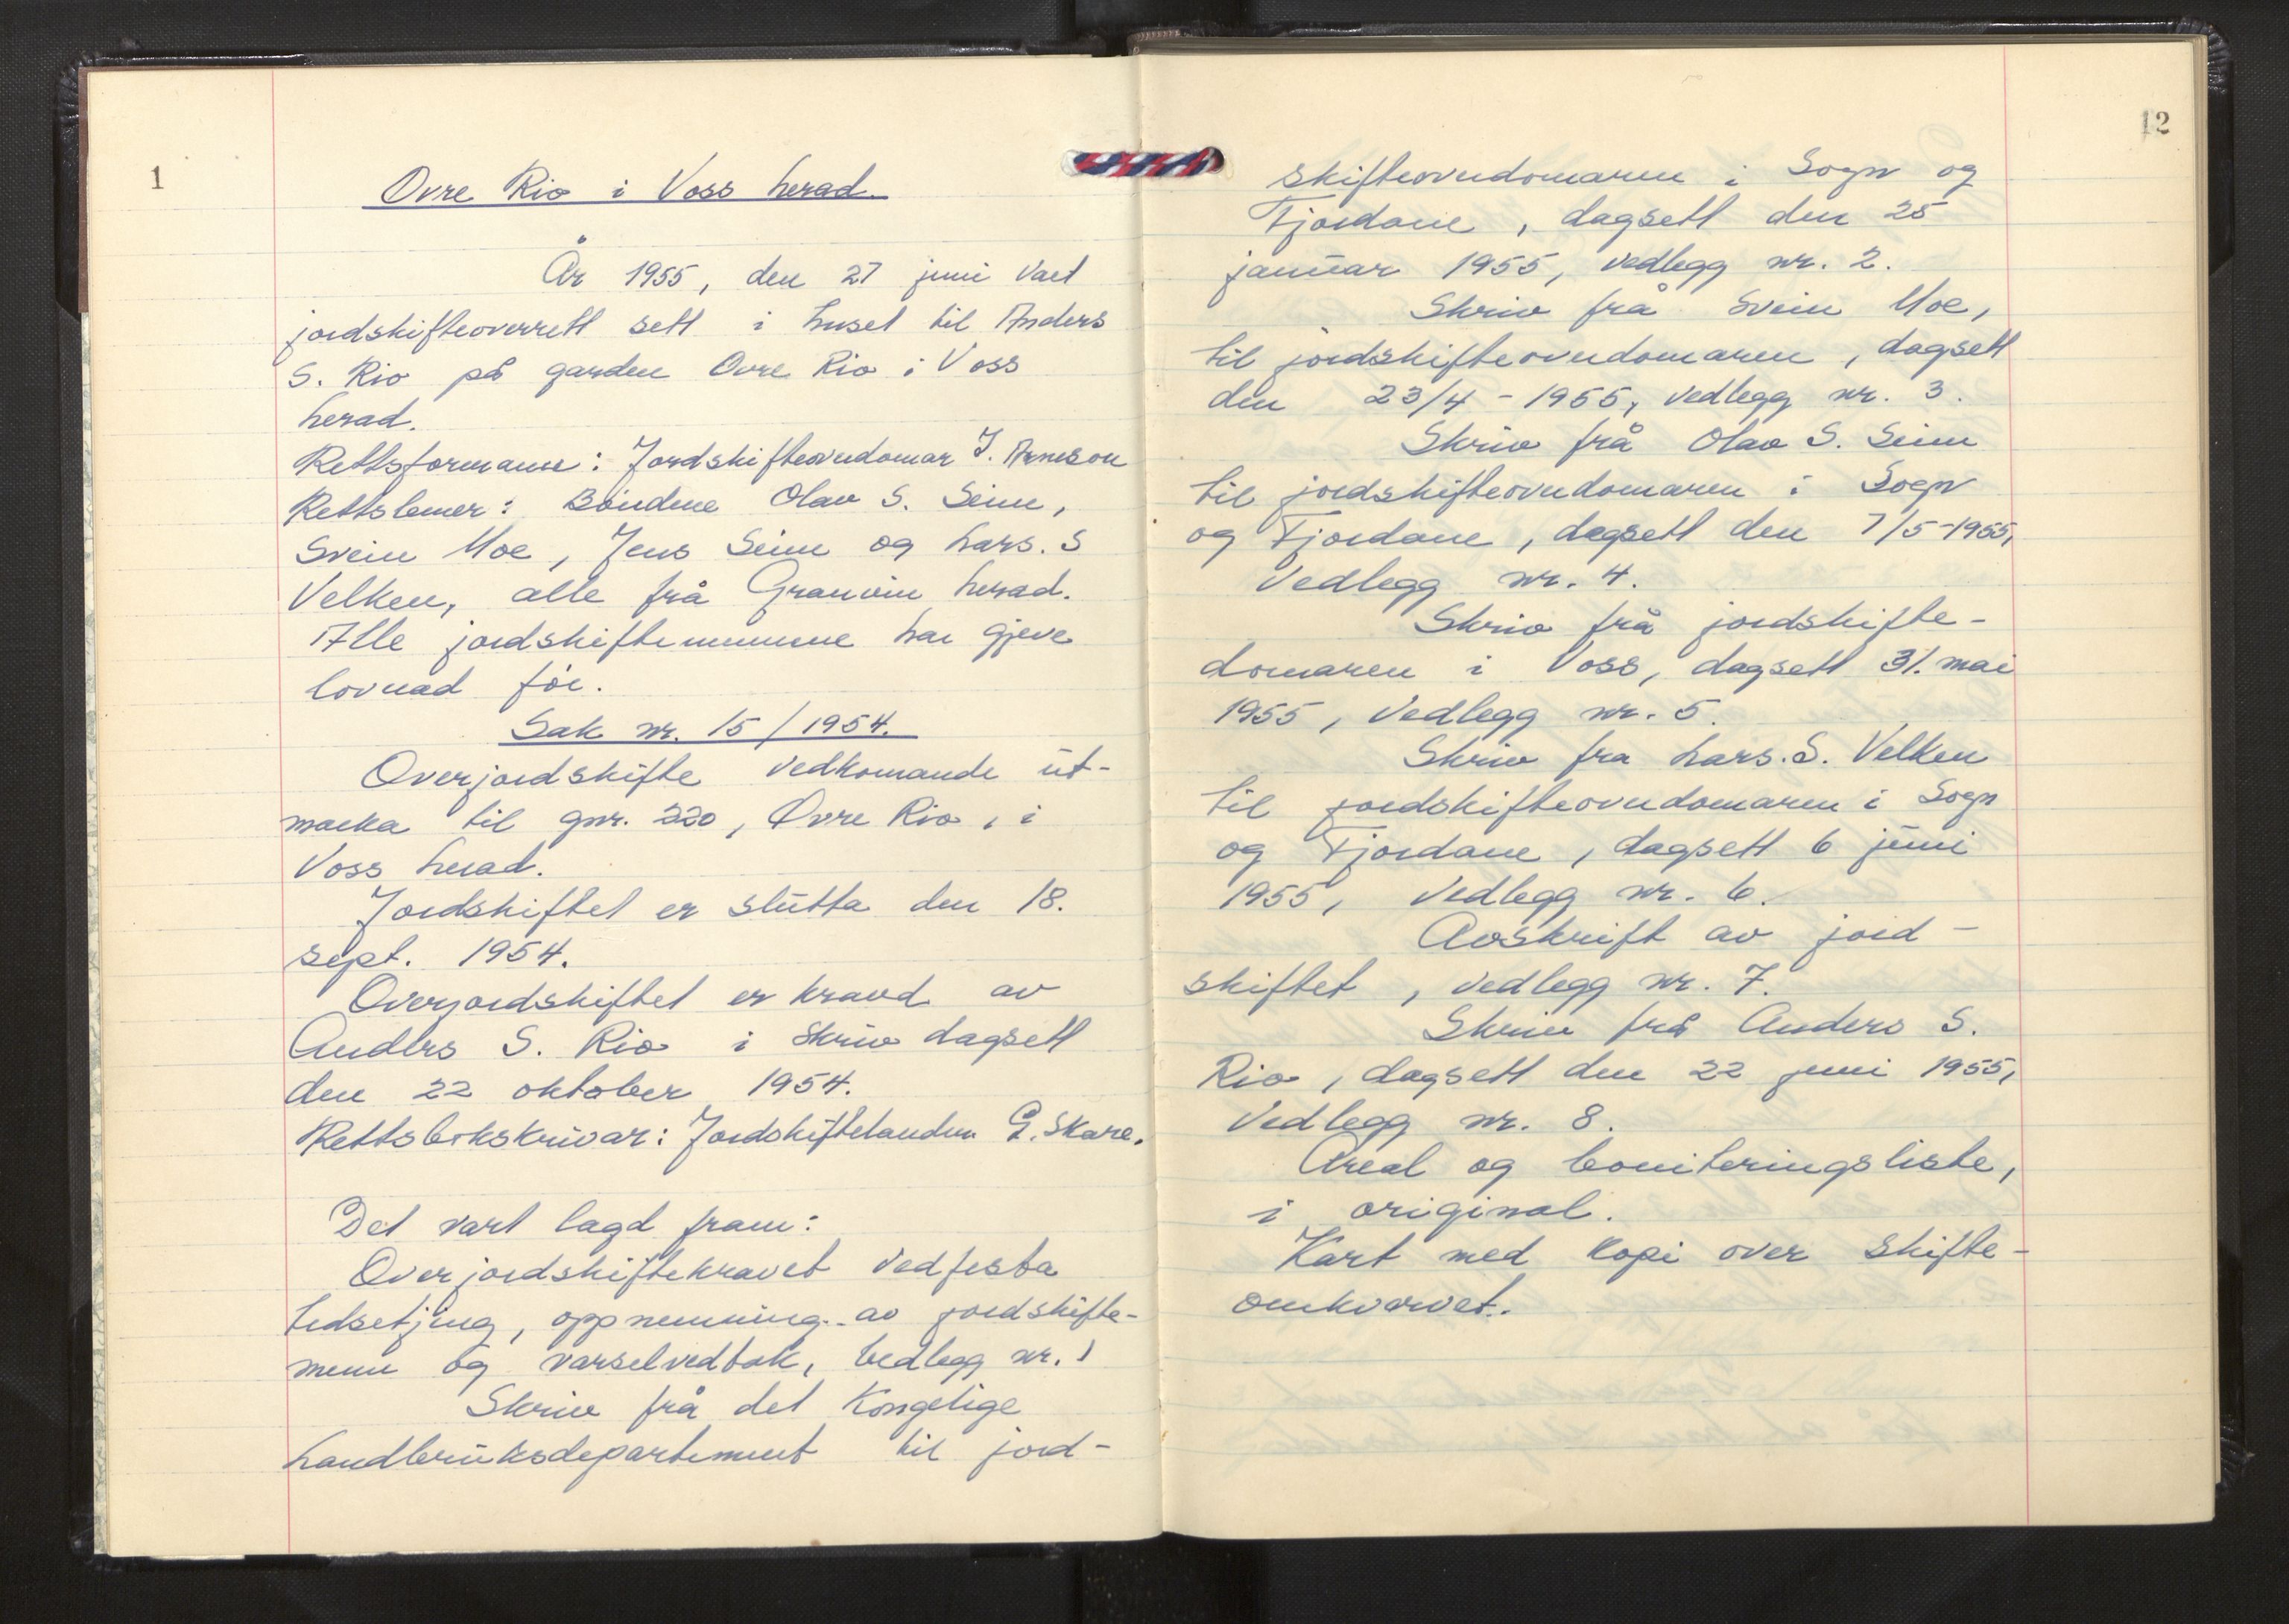 1
Øvre Rio i Voss herad.
År 1955, den 27 juni vart
jordskifteoverrett sett i huset til Anders
S. Rio på garden Øvre Rio i Voss
herad.
Rettsformann: Jordskifteoverdomar J. Arneson
Rettslemer: Bøndene Olav S. Seim,
Svein Moe, Jens Seim og Lars. S
Velken, alle frå Granvin herad.
Alle jordskiftemennene har gjeve
lovnad før.
Sak nr. 15/1954.
Overjordskifte vedkomande ut-
marka til gnr. 220, Øvre Rio, i
Voss herad.
Jordskiftet er slutta den 18.
sept. 1954.
Overjordskiftet er kravd av
Anders S. Rio i skriv dagsett
den 22 oktober 1954.
Rettsbokskrivar: Jordskiftekandm G. Skare.
Det vart lagd fram:
Overjordskiftekravet vedfesta
tidsetjing, oppnemning av jordskifte-
menn og varselvedtak, vedlegg nr. 1
Skriv frå det Kongelige
Landbruksdepartement til jord-
12
skifteoverdomaren i Sogn og
Fjordane, dagsett den 25
januar 1955, vedlegg nr. 2.
Skriv frå Svein Moe,
til jordskifteoverdomaren, dagsett
den 23/4 - 1955, vedlegg nr. 3.
Skriv frå Olav S. Seim
til jordskifteoverdomaren i Sogn
og Fjordane, dagsett den 7/5-1955,
vedlegg nr. 4.
Skriv frå jordskifte-
domaren i Voss, dagsett 31. mai
1955, vedlegg nr. 5.
Skriv fra Lars. S. Velken
til jordskifteoverdomaren i Sogn
og Fjordane, dagsett 6 juni
1955, vedlegg nr. 6.
Avskrift av jord-
skiftet, vedlegg nr. 7.
Skriv frå Anders S.
Rio, dagsett den 22 juni 1955,
vedlegg nr. 8.
Areal og boniteringsliste,
i original.
Kart med kopi over skifte-
omkvervet.